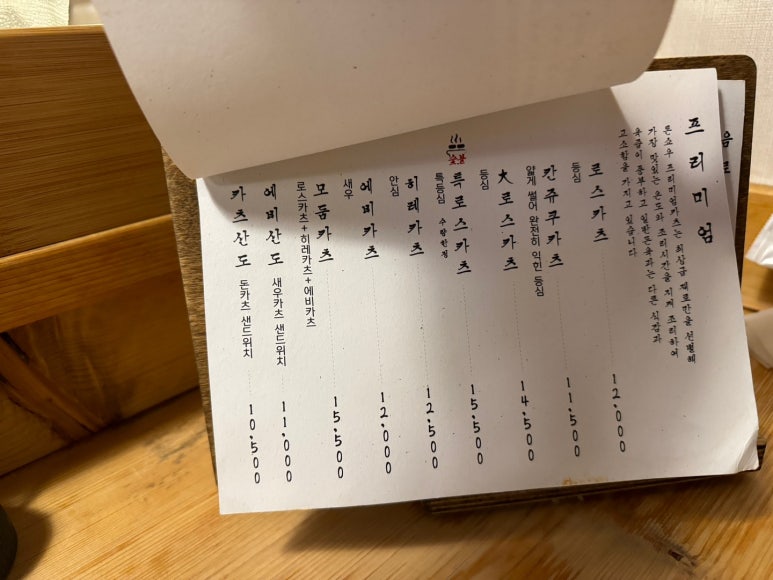 프리미엄
톤쇼우 프리미엄카츠는 최상급 재료만을 선별해
가장 맛있는 온도와 조리시간을 지켜 조리하여
육즙이 풍부하고 일반돈육과는 다른 식감과
고소함을 가지고 있습니다
로스카츠 12.000
등심
칸쥬쿠카츠 11.500
얇게 썰어 완전히 익힌 등심
大로스카츠 14.500
등심
숯불
특로스카츠 15.500
특등심 수량한정
히레카츠 12.500
안심
에비카츠 12.000
새우
모둠카츠 15.500
로스카츠+히레카츠+에비카츠
에비산도 새우카츠 샌드위치 11.000
카츠산도 돈카츠 샌드위치 10.500